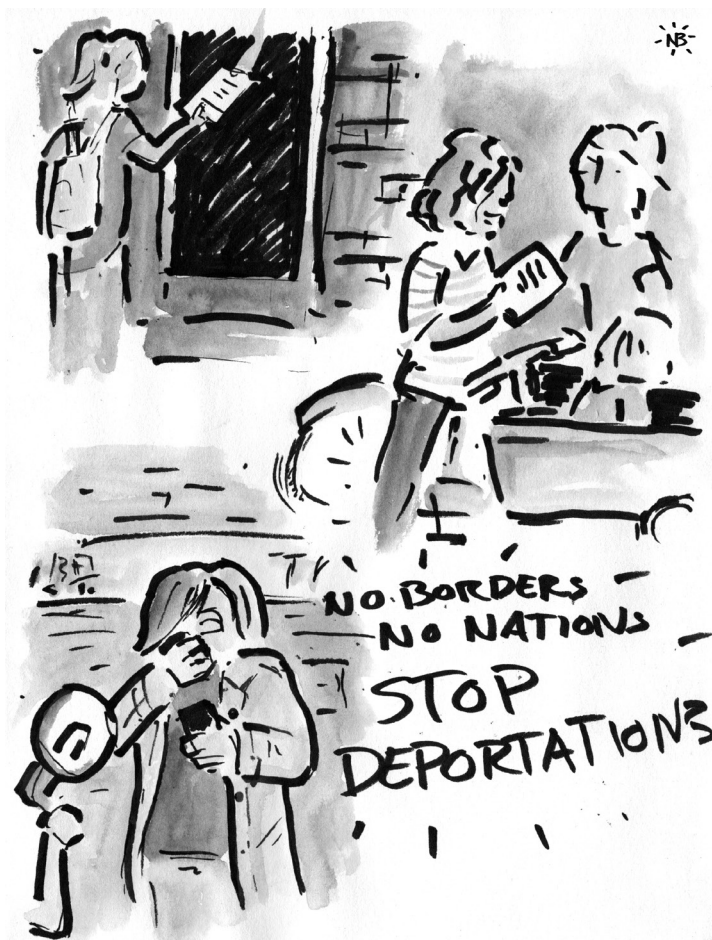 NB
NO BORDERS
NO NATIONS
STOP
DEPORTATIONS